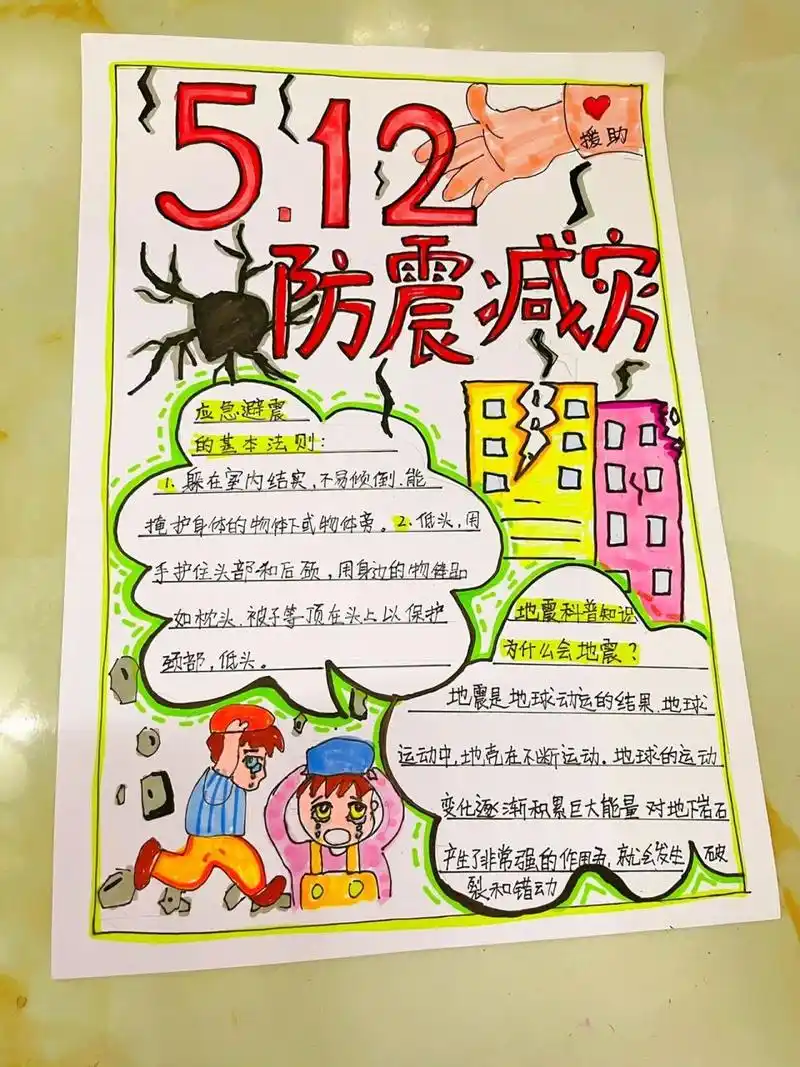 5.12
援助
防震减灾
应急避震
的基本法则:
1. 躲在室内结实,不易倾倒.能
掩护身体的物体下或物体旁。2. 低头,用
手护住头部和后颈,用身边的物品
如枕头.被子等顶在头上以保护
颈部,低头。
地震科普知识
为什么会地震?
地震是地球动运的结果.地球
运动中,地壳在不断运动.地球的运动
变化逐渐积累巨大能量 对地下岩石
产生了非常强的作用力,就会发生 破
裂和错动